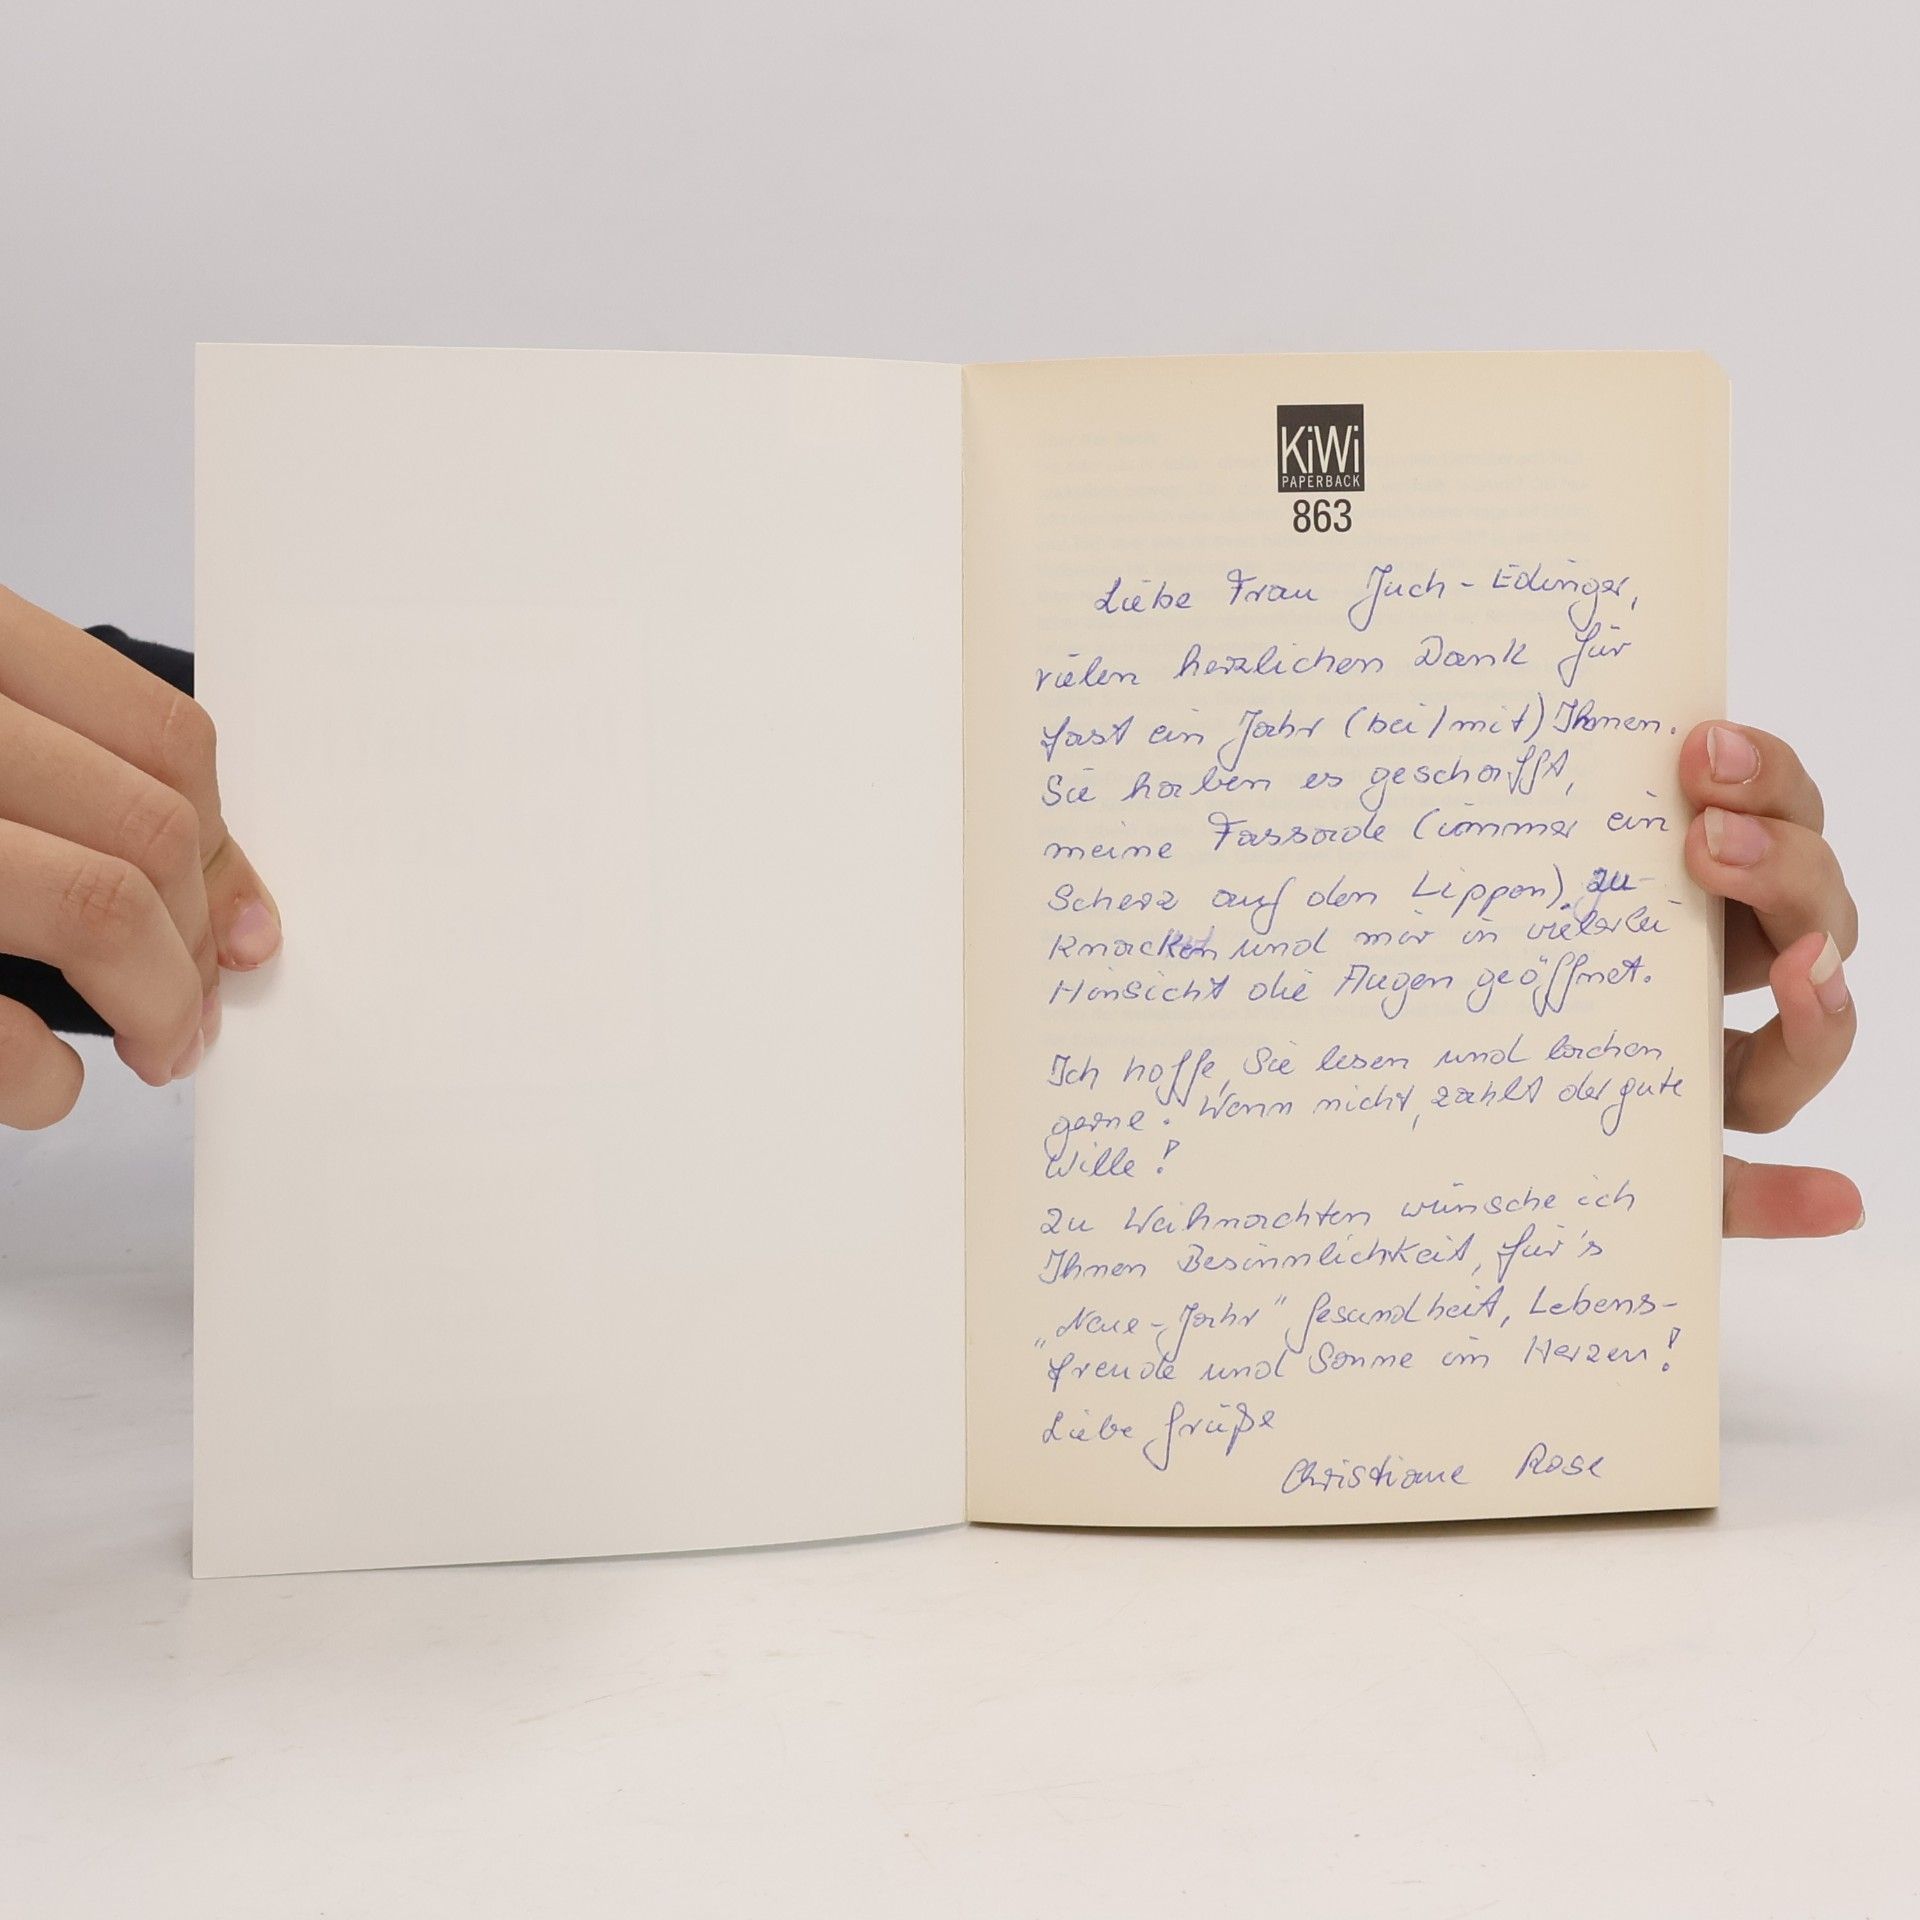 KiWi
PAPERBACK
863
Liebe Frau Juch-Edinger,
vielen herzlichen Dank für
fast ein Jahr (bei/mit) Ihnen.
Sie haben es geschafft,
meine Fassade (immer ein
Scherz auf den Lippen) zu-
knacken und mir in vielerlei
Hinsicht die Augen geöffnet.
Ich hoffe, Sie lesen und lachen
gerne. Wenn nicht, zählt der gute
Wille!
Zu Weihnachten wünsche ich
Ihnen Besinnlichkeit, für's
„Neue-Jahr" Gesundheit, Lebens-
freude und Sonne im Herzen!
Liebe Grüße
Christiane Rose